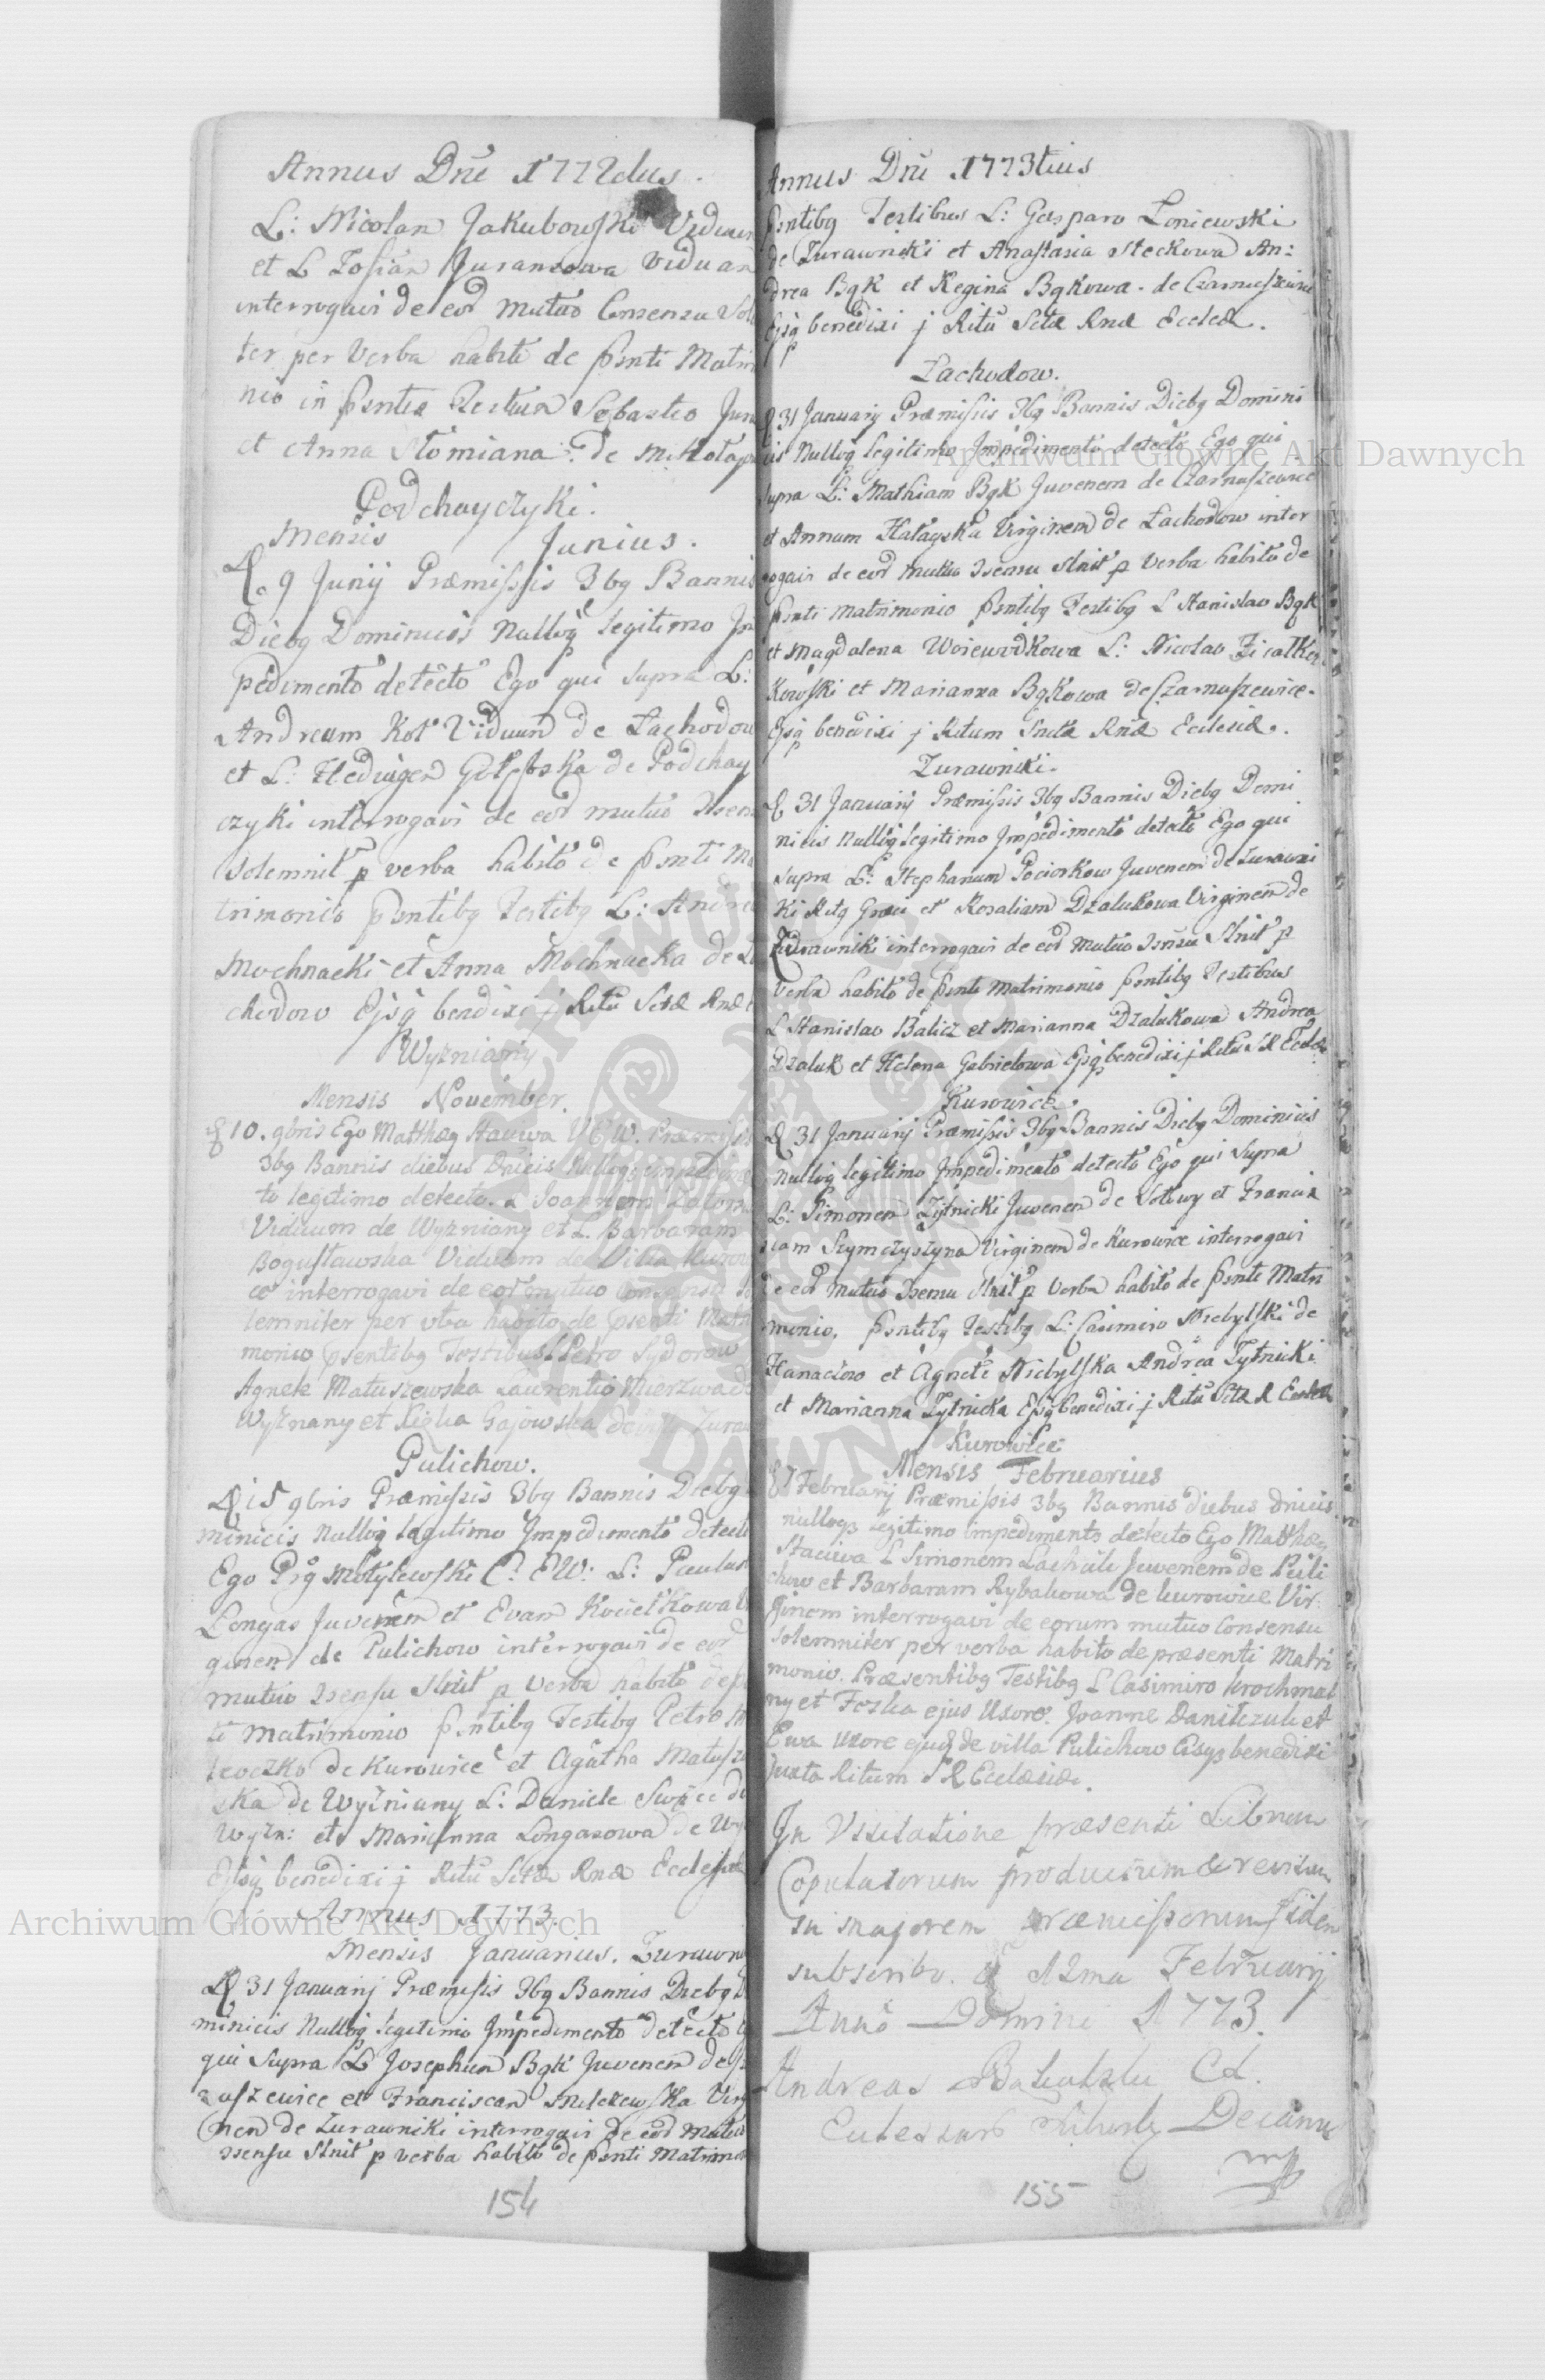 Annus Dñi 1772dus.
L: Nicolan Jakubowski Viduum
et L Zofian Juransowa viduan
interrogavi de eod mutuo Consensu Sol
ter per Verba habiti de psnti Matri
nio in psntia Testium Sebastio Jur
et Anna Słomiana: de Mikołaj
Podchayczyki.
Mensis Junius.
D. 9 Junij Præmissis 3bg Bannis
Diebg Dominicis Nulloq legitimo Jm
pedimento detecto Ego qui supra L:
Andream Kot Viduum de Lachodow
et L: Hedvigen Gołębska de Podchay
czyki interrogavi de eod mutuo 
Solemnit p verba habito de psnti Ma
trimonio psntibg Testibg L: Andrea
Mochnacki et Anna Mochnacka de La
chodow Ejsq bendixi j Ritu Sctæ Rnæ
Wyzniany
Mensis November.
D 10. 9bris Ego Matthæg Staciwa V C W. Præmissis
3bg Bannis diebus Dnicis Nulloq impedimen
to legitimo detecto. Joannem
Viduum de Wyzniany et L. Barbaram
Bogusławska Viduam de Villa Kurow
ce interrogavi de eor mutuo consensu so
lemniter per vba habito de psenti Matri
monio psentibg Testibus L Petro Sydorow
Agnete Matuszewska Laurentio Mierzwa de
Wyznany et Gajowska de villa Zuraw
Pulichow.
D 15 9bris Præmissis 3bg Bannis Diebg
minicis Nulloq legitimo Jmpedimento detecto
Ego Motylewski C: EW: L: Paulum
Longas Juvenem et Evam Kociełkowa V
ginen de Pulichow interrogavi de eod
mutuo Slnit p verba habito de ps
ti Matrimonio psntibg Testibg Petro
de Kurowice et Agatha Matusze
ska de Wyzniany L: Daniele de
Wyzn: et Marianna Longasowa de Wy
Ejsq benedixi j Ritu Sctæ Rnæ Ecclesiæ
Annus 1773.
Mensis Januarius. Zurawni
D 31 Januarij Præmissis 3bg Bannis Diebg D
minicis Nulloq legitimo Jmpedimento detecto
qui Supra L Josephum Bąk Juvenem de
nuszewice et Franciscan Milczewska Virg
nen de Zurawniki interrogavi de eod Mutuo
Slnit p verba habito de psnti Matrimo
154
Annus Dñi 1773tius
psntibg Testibus L: Gasparo Loniewski
de Zurawniki et Anastasia Steckowa An:
drea Bąk et Regina Bąkowa. de Czarnuszewice
Ejsq benedixi j Ritu Sctæ Rnæ Eccleæ.
Lachodow.
D 31 Januarij Præmissis 3bg Bannis Diebg Domini
cis Nulloq legitimo Jmpedimento detecto Ego qui
supra L: Mathiam Bąk Juvenem de Czarnuszewice
et Annam Hałayska Virginem de Lachodow inter
rogavi de eod mutuo Slnit p Verba habito de
psnti matrimonio psntibg Testibg L Stanislao Bąk
et Magdalena Woiewodkowa L: Nicolao
kowski et Marianna Bąkowa de Czarnuszewice.
Ejsq benedixi j Ritum Snctæ Rnæ Ecclesiæ.
Zurawniki.
D 31 Januarij Præmissis 3bg Bannis Diebg Domi
nicis Nulloq legitimo Jmpedimento detecto Ego qui
supra L: Stephanum Pociorkow Juvenem de Zurawni
ki Ritg Græci et Rosaliam Dzalukowa Virginem de
Zurawniki interrogavi de eod mutuo Slnit p
Verba habito de psnti Matrimonio psntibg Testibus
L Stanislao Balicz et Marianna Dzalukowa Andrea
Dzaluk et Helena Gabrielowa Ejsq benedixi j Ritu S R Eccleæ
Kurowice.
D 31 Januarij Præmissis 3bg Bannis Diebg Dominicis
Nulloq legitimo Jmpedimento detecto Ego qui supra
L: Simonen Zytnicki Juvenen de et Francis
cam Szymczyszyna Virginem de Kurowice interrogavi
de eod mutuo Slnit p Verba habito de psnti Matri
monio, psntibg Testibg L: Casimiro Niebylski de
Hanaczow et Agnete Niebylska Andrea Zytnicki
et Marianna Zytnicka Ejsq benedixi j Ritu Sctæ R Eccleæ
Kurowice
Mensis Februarius
D 7 Februarij Præmissis 3bg Bannis diebus Dnicis
nulloq legitimo impedimento detecto Ego Matthæg
Staciwa L Simonem Juvenem de Puli
chow et Barbaram Rybakowa de Kurowice Vir
ginem interrogavi de eorum mutuo Consensu
Solemniter per verba habito de præsenti Matri
monio. Præsentibg Testibg L Casimiro Krochmal
ny et Feska ejus Uxore. Joanne Danilczuk et
Ewa uxore ejus de villa Pulichow Eisq benedixi
Juxta Ritum S R Ecclesiæ.
Jn Visitatione præsenti Librum
Copulatorum productum & revisum
in majorem præmissorum fidem
subscribo. D 12ma Februarij
Anno Domini 1773.
Andreas
Decanus
mp
155
Archiwum Główne Akt Dawnych
Archiwum Główne Akt Dawnych